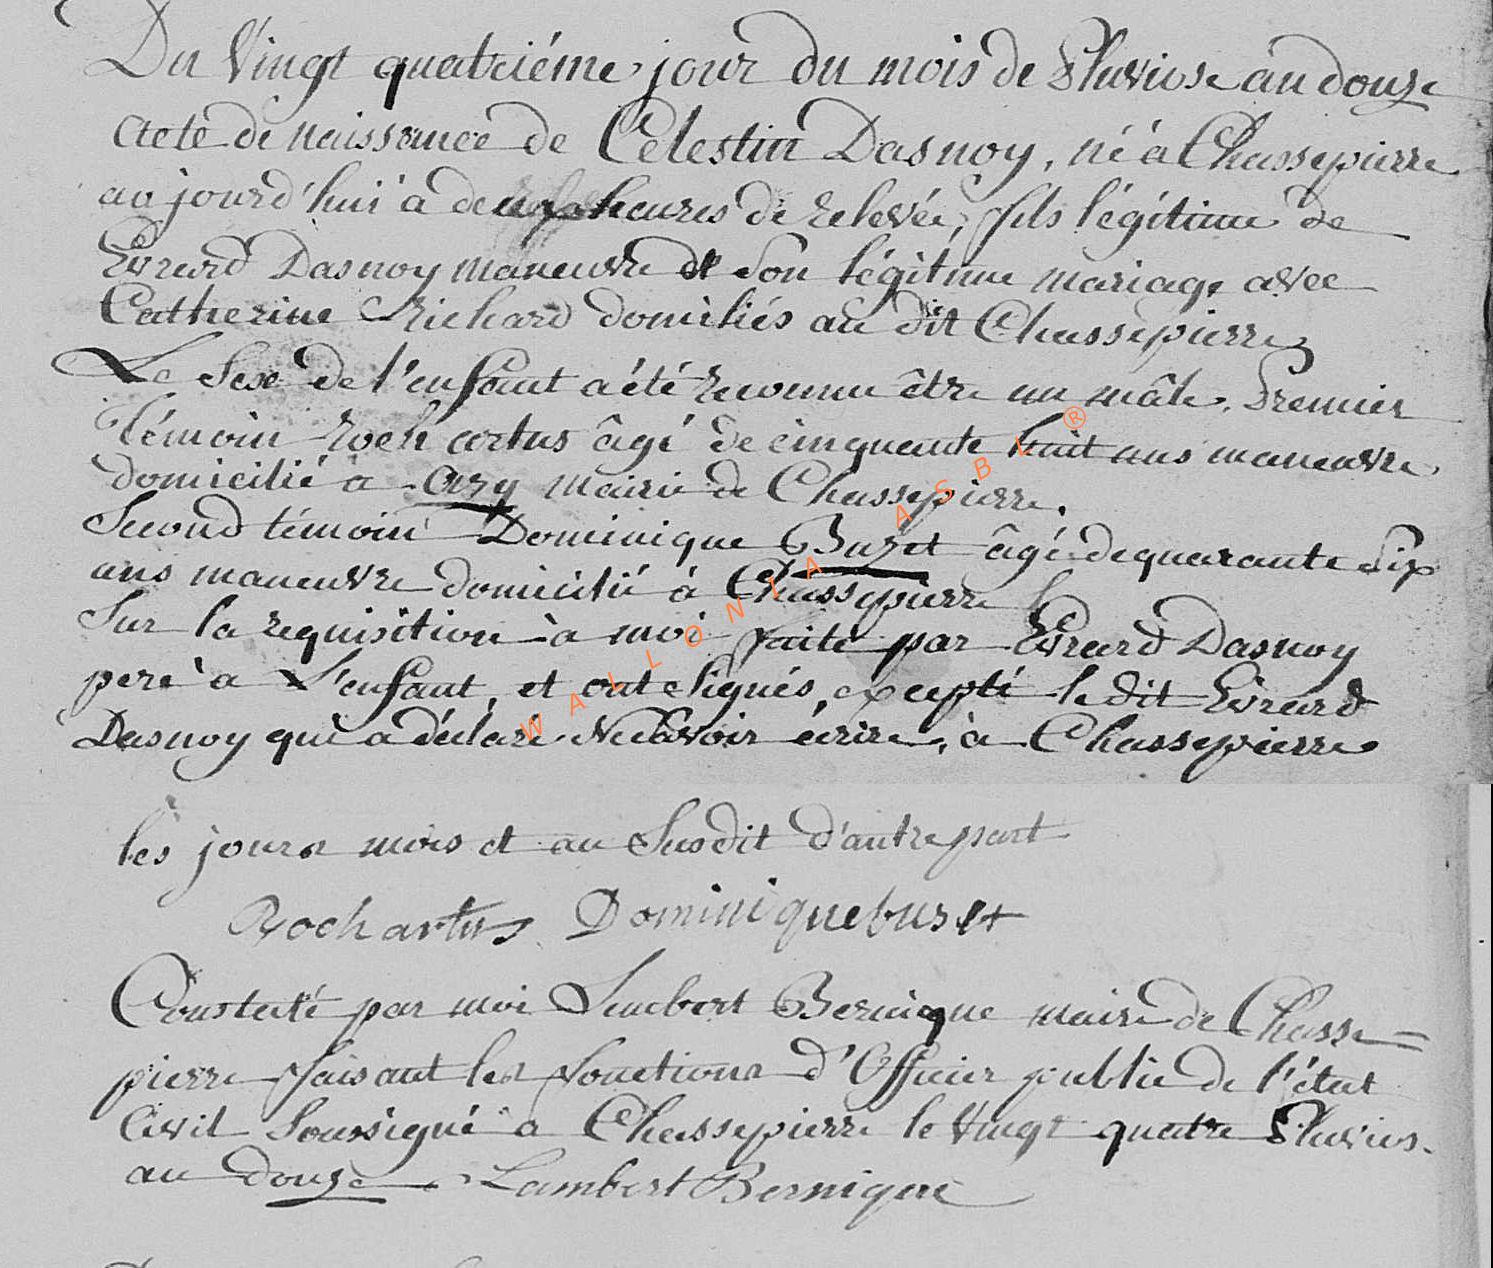 Du Vingt quatriéme jour du mois de Pluviose an douze
acte de naissance de Célestin Dasnoy, né à Chassepierre
aujourd'hui à deux heures de relevée, fils légitime de
Evrard Dasnoy maneuvre et son légitime mariage avec
Catherine Richard domiciliés au dit Chassepierre
Le Sexe de l'enfant a été reconnu être un mâle. Premier
témoin Roch artus âgé de cinquante huit ans maneuvre
domicilié à azy mairie de Chassepierre.
Second témoin Dominique Buzet âgé de quarante Six
ans maneuvre domicilié à Chassepierre
Sur la requisition à moi faite par Evrard Dasnoy
pere à L'enfant, et ont Signés, excepté le dit Evrard
Dasnoy qui a déclaré ne Savoir écrire, à Chassepierre
les jours mois et an Susdit d'autre part
Roch artus Dominique buzet
Constaté par moi Lambert Bernique maire de Chasse=
pierre faisant les fonctions d'Officier public de l'état
Civil Soussigné à Chassepierre le Vingt quatre Pluvios.
an douze Lambert Bernique
WALLONIA ASBL ®